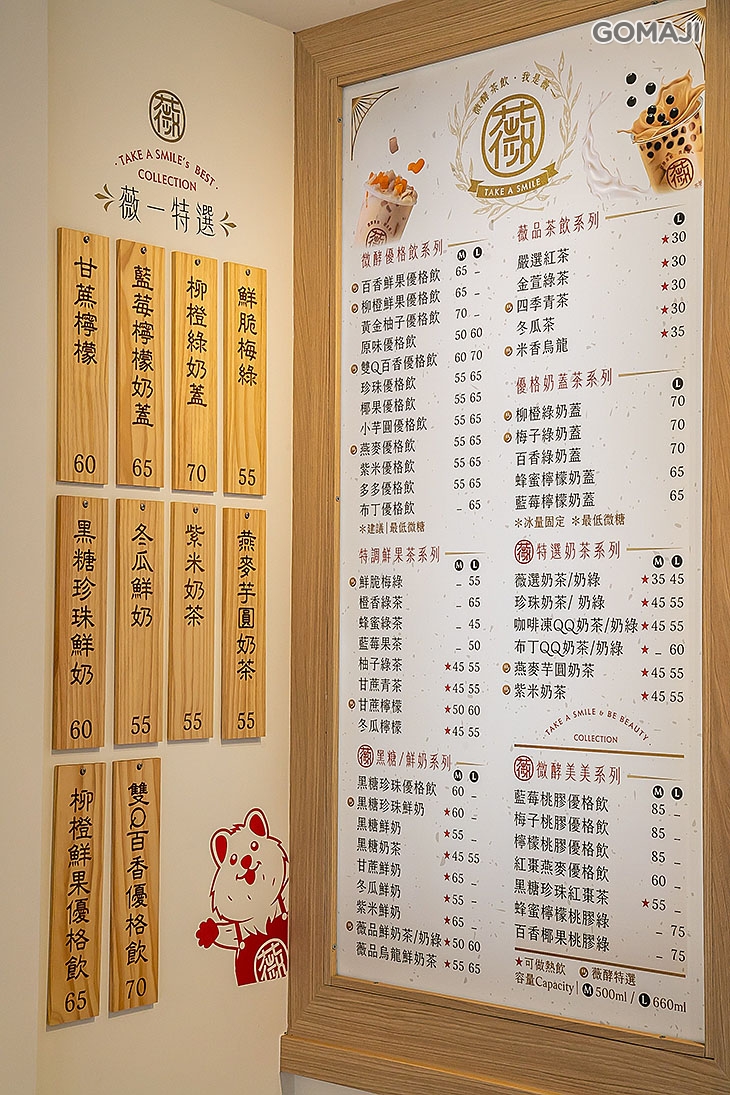 GOMAJI
薇
TAKE A SMILE's BEST
COLLECTION
薇一特選
甘蔗檸檬 60
藍莓檸檬奶蓋 65
柳橙綠奶蓋 70
鮮脆梅綠 55
黑糖珍珠鮮奶 60
冬瓜鮮奶 55
紫米奶茶 55
燕麥芋圓奶茶 55
柳橙鮮果優格飲 65
雙Q百香優格飲 70
薇
薇酵茶飲·我是薇一
薇
TAKE A SMILE
薇
薇
微酵優格飲系列 M L
百香鮮果優格飲 65 –
柳橙鮮果優格飲 65 –
黃金柚子優格飲 70 –
原味優格飲 50 60
雙Q百香優格飲 60 70
珍珠優格飲 55 65
椰果優格飲 55 65
小芋圓優格飲 55 65
燕麥優格飲 55 65
紫米優格飲 55 65
多多優格飲 55 65
布丁優格飲 – 65
＊建議|最低微糖
特調鮮果茶系列 M L
鮮脆梅綠 – 55
橙香綠茶 – 65
蜂蜜綠茶 – 45
藍莓果茶 – 50
柚子綠茶 ★45 55
甘蔗青茶 ★45 55
甘蔗檸檬 ★50 60
冬瓜檸檬 ★45 55
薇 黑糖/鮮奶系列 M L
黑糖珍珠優格飲 60 –
黑糖珍珠鮮奶 ★60 –
黑糖鮮奶 ★55 –
黑糖奶茶 ★45 55
甘蔗鮮奶 ★65 –
冬瓜鮮奶 ★55 –
紫米鮮奶 ★65 –
薇品鮮奶茶/奶綠 ★50 60
薇品烏龍鮮奶茶 ★55 65
薇品茶飲系列 L
嚴選紅茶 ★30
金萱綠茶 ★30
四季青茶 ★30
冬瓜茶 ★30
米香烏龍 ★35
優格奶蓋茶系列 L
柳橙綠奶蓋 70
梅子綠奶蓋 70
百香綠奶蓋 70
蜂蜜檸檬奶蓋 65
藍莓檸檬奶蓋 65
＊冰量固定 ＊最低微糖
薇 特選奶茶系列 M L
薇選奶茶/奶綠 ★35 45
珍珠奶茶/奶綠 ★45 55
咖啡凍QQ奶茶/奶綠 ★45 55
布丁QQ奶茶/奶綠 ★ – 60
燕麥芋圓奶茶 ★45 55
紫米奶茶 ★45 55
·TAKE A SMILE & BE BEAUTY·
COLLECTION
薇 微酵美美系列 M L
藍莓桃膠優格飲 85 –
梅子桃膠優格飲 85 –
檸檬桃膠優格飲 85 –
紅棗燕麥優格飲 60 –
黑糖珍珠紅棗茶 ★55 –
蜂蜜檸檬桃膠綠 – 75
百香椰果桃膠綠 – 75
★可做熱飲 薇酵特選
容量Capacity| M 500ml / L 660ml